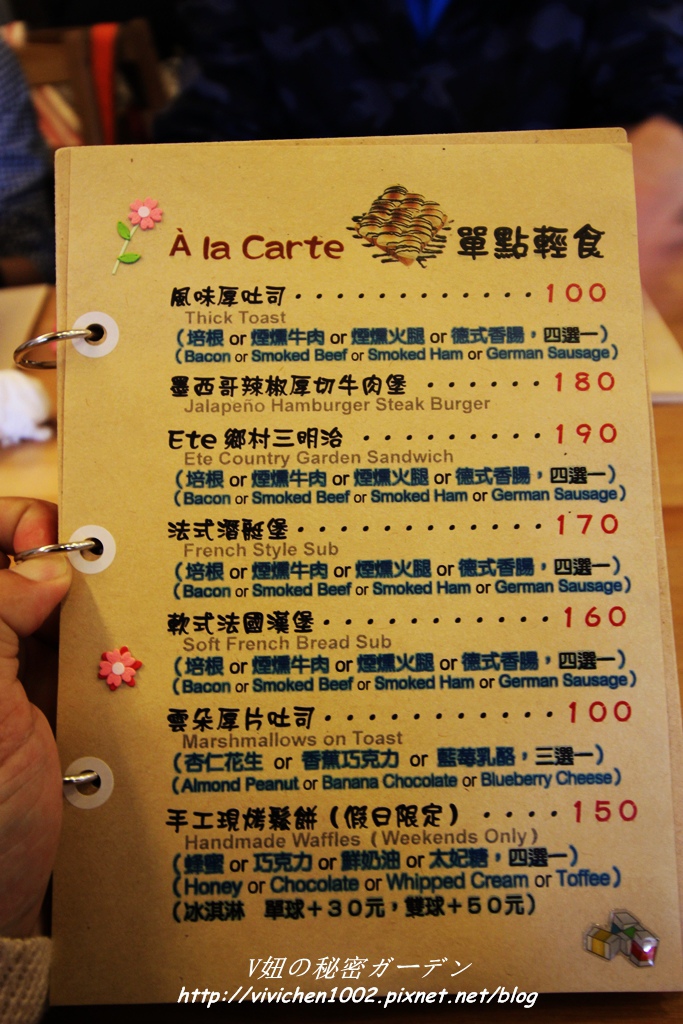 À la Carte 單點輕食
風味厚吐司・・・・・・・・・・・・100
Thick Toast
(培根 or 煙燻牛肉 or 煙燻火腿 or 德式香腸，四選一)
(Bacon or Smoked Beef or Smoked Ham or German Sausage)
墨西哥辣椒厚切牛肉堡 ・・・・・・180
Jalapeño Hamburger Steak Burger
Ete 鄉村三明治 ・・・・・・・・・190
Ete Country Garden Sandwich
(培根 or 煙燻牛肉 or 煙燻火腿 or 德式香腸，四選一)
(Bacon or Smoked Beef or Smoked Ham or German Sausage)
法式潛艇堡・・・・・・・・・・・・170
French Style Sub
(培根 or 煙燻牛肉 or 煙燻火腿 or 德式香腸，四選一)
(Bacon or Smoked Beef or Smoked Ham or German Sausage)
軟式法國漢堡・・・・・・・・・・・160
Soft French Bread Sub
(培根 or 煙燻牛肉 or 煙燻火腿 or 德式香腸，四選一)
(Bacon or Smoked Beef or Smoked Ham or German Sausage)
雲朵厚片吐司・・・・・・・・・・・100
Marshmallows on Toast
(杏仁花生 or 香蕉巧克力 or 藍莓乳酪，三選一)
(Almond Peanut or Banana Chocolate or Blueberry Cheese)
手工現烤鬆餅（假日限定）・・・・150
Handmade Waffles (Weekends Only)
(蜂蜜 or 巧克力 or 鮮奶油 or 太妃糖，四選一)
(Honey or Chocolate or Whipped Cream or Toffee)
(冰淇淋 單球＋30元，雙球＋50元)
V妞の秘密ガーデン
http://vivichen1002.pixnet.net/blog